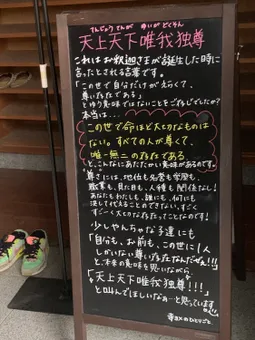 てんじょう てんが ゆいが どくそん
天上天下唯我独尊
これはお釈迦さまが誕生した時に
言ったとされる言葉です。
「この世で自分だけがえらくて、
尊い存在である」
とゆう意味ではないことをご存じでしたか?
本当は…
この世で命ほど大切なものは
ない。すべての人が尊くて、
唯一無二の存在である
と、こんなにあたたかい意味があるのです。
尊さには、地位も名誉も学歴も、
職業も、見た目も、人種も関係なし!
あなたもわたしも、誰にも、何にも
決して代えることのできない、すごく
すごーく大切な存在ってことなのです!
少しやんちゃな子達にも
「自分も、お前も、この世に1人
しかいない尊い存在なんだぜ!!!」
と、本来の意味を思いながら
「天上天下唯我独尊!!!」
と叫んでほしいなぁ…と思っています
寺嫁のひとりごと。